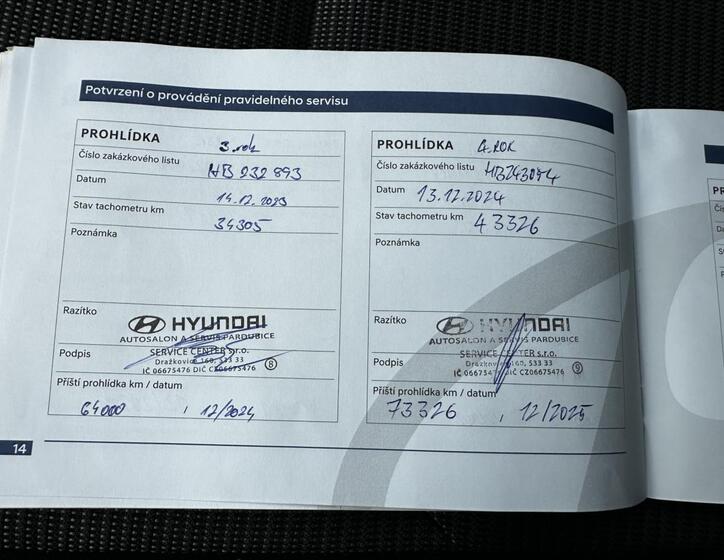 Potvrzení o provádění pravidelného servisu
PROHLÍDKA 3. rok
Číslo zakázkového listu HB 232 893
Datum 14.12.2023
Stav tachometru km 34305
Poznámka
Razítko
HYUNDAI
AUTOSALON A SERVIS PARDUBICE
Podpis
SERVICE CENTER s.r.o.
Dražkovice 160, 533 33
IČ 06675476 DIČ CZ06675476 8
Příští prohlídka km / datum
64000 , 12/2024
PROHLÍDKA 4. ROK
Číslo zakázkového listu HB243054
Datum 13.12.2024
Stav tachometru km 43326
Poznámka
Razítko
HYUNDAI
AUTOSALON A SERVIS PARDUBICE
Podpis
SERVICE CENTER s.r.o.
Dražkovice 160, 533 33
IČ 06675476 DIČ CZ06675476 9
Příští prohlídka km / datum
73326 , 12/2025
14